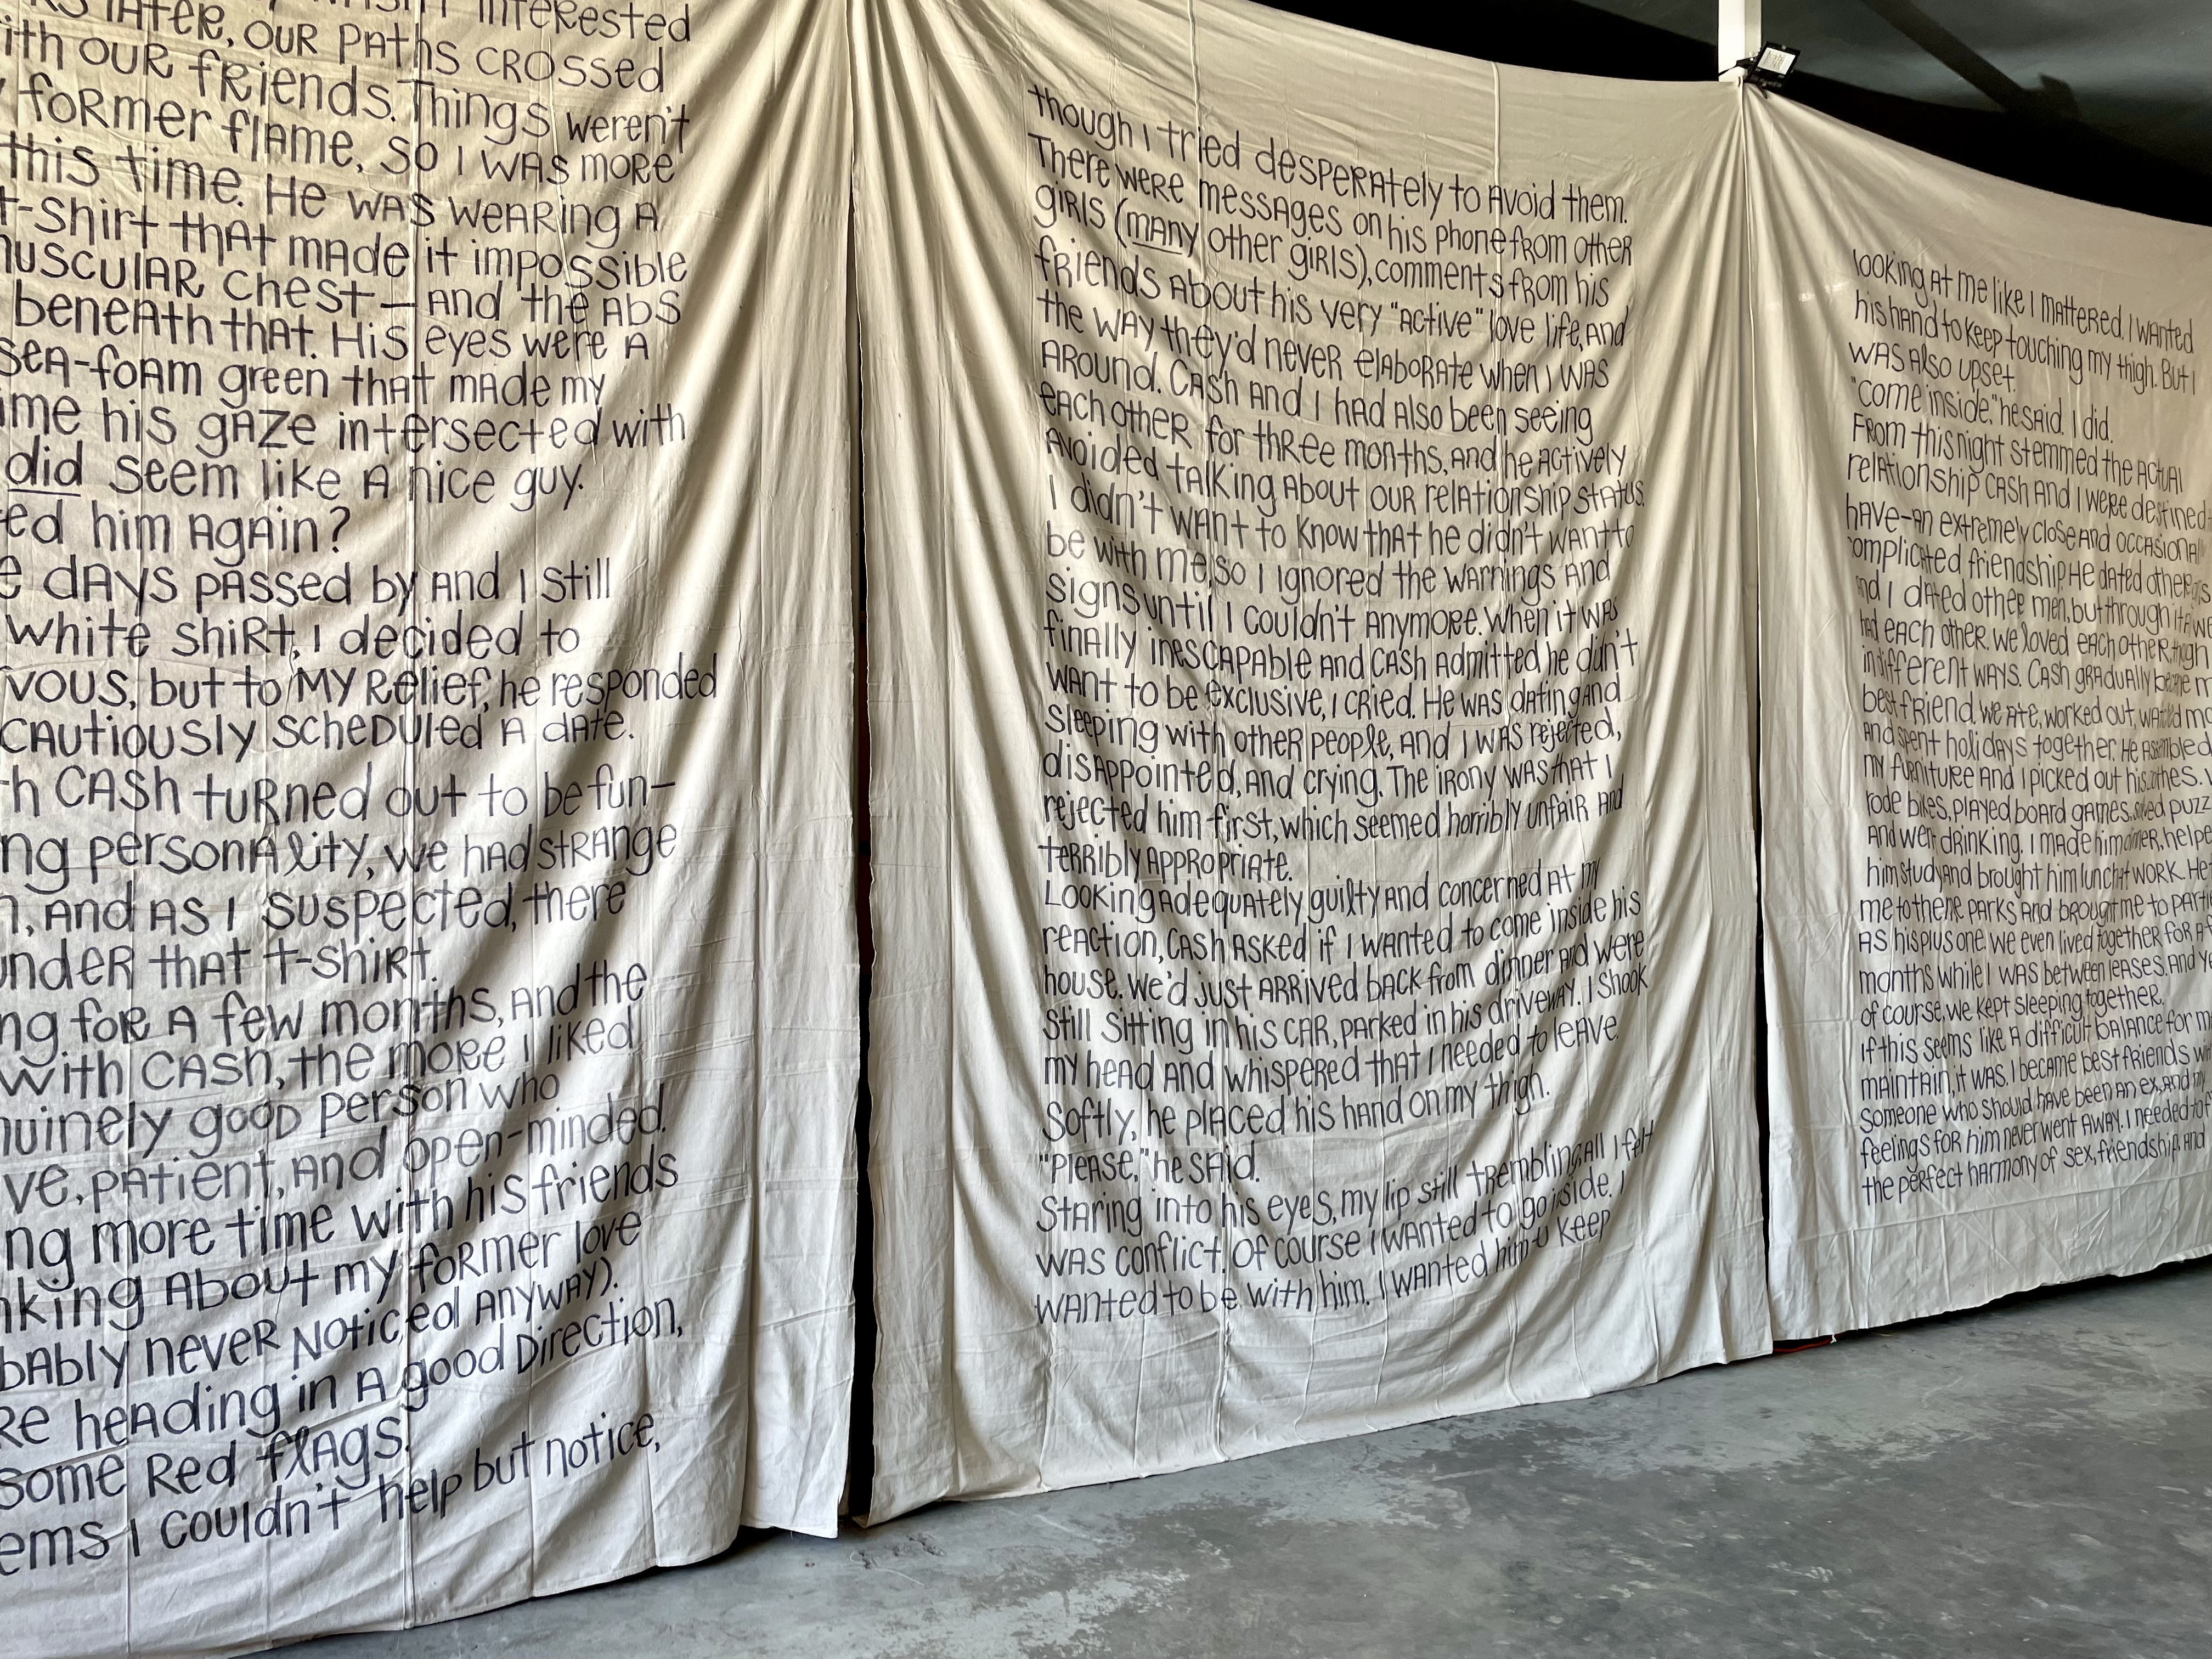 LATER, OUR PATHS CROSSED
with OUR fRiends. Things weren't
former flAme, so I WAS moRe
this time. He WAS weARing A
t-Shirt thAt mAde it impossible
muscULAR chest—And the Abs
beneAth thAt. His eyes were A
seA-foAm green thAt mAde my
his gAze intersected with
did seem like A nice guy.
him AgAin?
dAYS pAssed by And I still
white shiRt, I decided to
but to MY Relief, he responded
CAUtiously scheDuled A dAte.
CASh tuRned out to be fun—
personAlity, we hAd stRAnge
And AS I suspected, there
undeR thAt t-shiRt.
foR A few months, And the
with CASh, the moRe I liked
good person who
pAtient, And open-minded.
more time with his friends
About my foRmer love
never Noticed ANYWAY).
heAding in A good Direction,
some Red flAgs.
I couldn't help but notice,
though I tried despeRAtely to Avoid them.
There were messAges on his phone fRom otheR
giRls (mANy other giRls), comments fRom his
fRiends About his very "Active" love life, And
the WAY they'd neveR elAboRAte when I WAS
ARound. CASh And I hAd Also been seeing
eAch otheR for thRee months, And he Actively
Avoided tAlking About ouR relAtionship stAtus.
I didn't WAnt to know thAt he didn't WAnt to
be with me, so I ignoRed the wARnings And
signs until I couldn't AnymoRe. When it WAS
finAlly inescApAble And CASh Admitted he didn't
WANt to be exclusive, I cried. He WAS dAting And
sleeping with otheR people, And I WAS rejected,
disAppointed, And crying. The iRony WAS thAt I
rejected him first, which seemed horribly unfAir And
teRRibly AppRopriAte.
Looking AdequAtely guilty And conceRned At my
reAction, CASh ASked if I wAnted to come inside his
house. We'd just ARRived bAck from dinneR And were
still sitting in his CAR, pARked in his drivewAY. I Shook
my heAd And whispeRed thAt I needed to leAve.
Softly, he plAced his hAnd on my thigh.
"PleASe," he sAid.
StARing into his eyes, my lip still trembling, All I felt
WAS conflict. Of couRse I wAnted to go inside. I
wAnted to be with him. I wAnted him to keep
looking At me like I mAtteRed. I wAnted
his hAnd to keep touching my thigh. But I
WAS Also upset.
"Come inside." he sAid. I did.
From this night stemmed the ActuAl
relAtionship CASh And I weRe destined
hAve—An extremely close And occAsionAl
complicAted friendship. He dAted otheR
And I dAted other men, but thRough it All we
hAd eAch other. We loved eAch otheR, though
in different WAYS. CASh gRAduAlly becAme
best friend. We Ate, worked out, wAtched
And spent holidAYS together. He Assembled
my fuRnituRe And I picked out his clothes.
rode bikes, plAyed boARd gAmes, solved
And went drinking. I mAde him dinner,
him study And brought him lunch At WORK. He
me to theme pARks And bRought me to
AS his plus one. We even lived together foR A
months while I WAS between leASes. And
of course, we kept sleeping together.
If this seems like A difficult bAlAnce foR
mAintAin, it WAS. I becAme best fRiends
someone who should hAve been An ex, And my
feelings for him neveR went AWAY. I needed to
the peRfect hARmony of sex, friendship, And